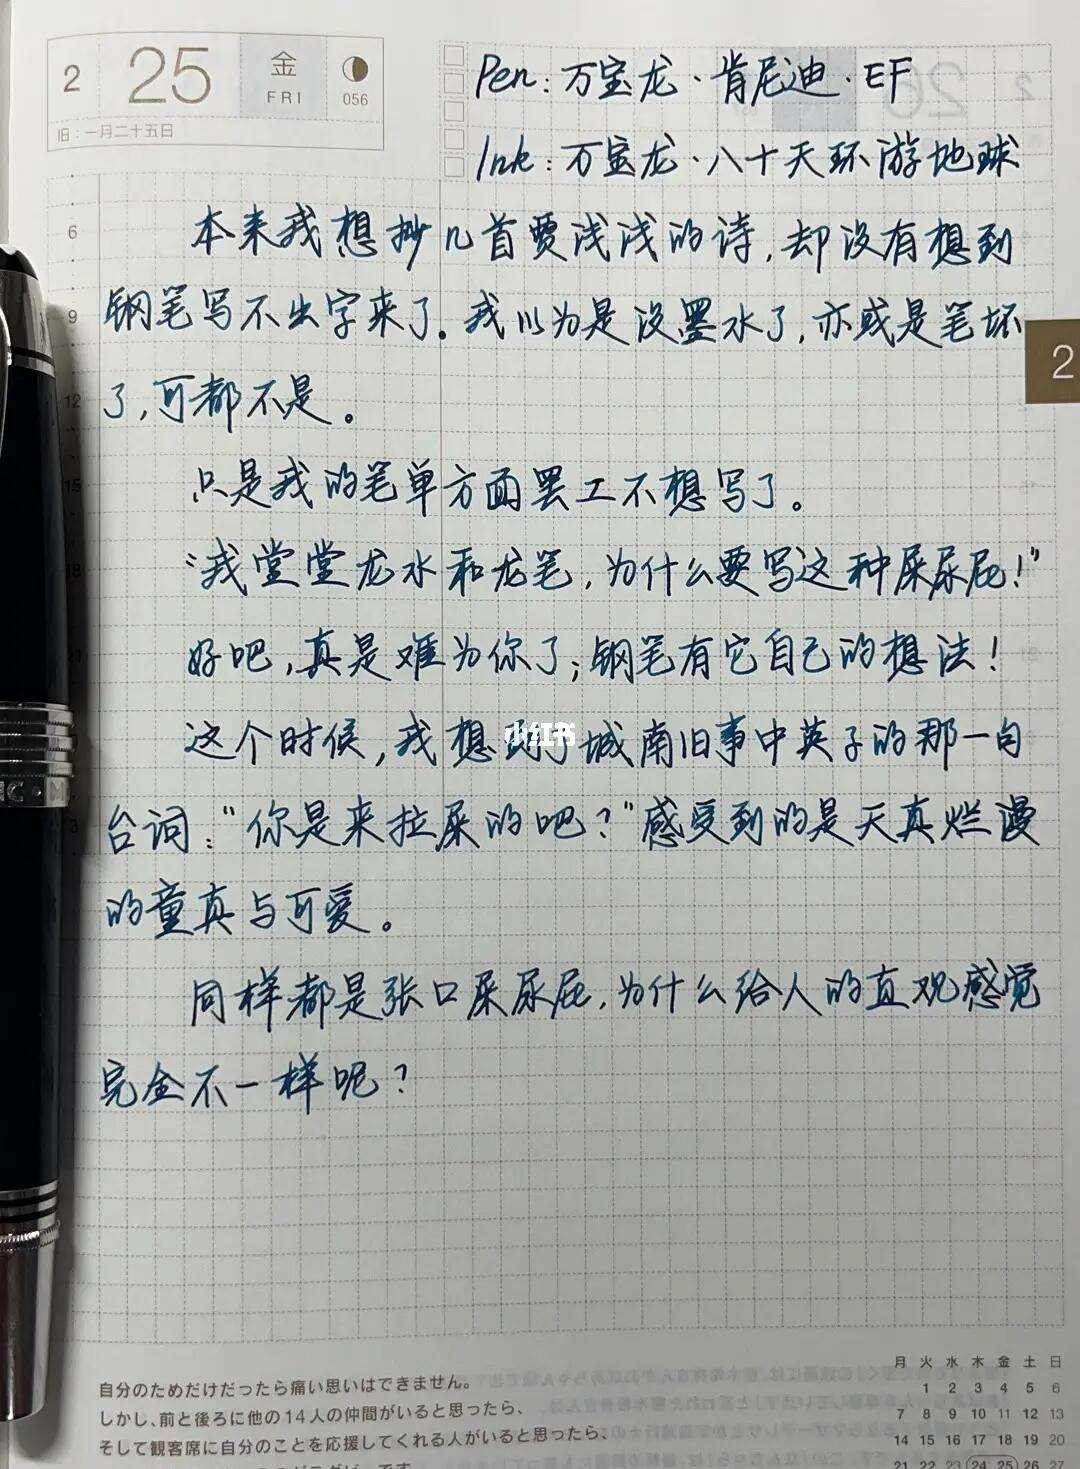 2 25 金 FRI 056
旧：一月二十五日
Pen：万宝龙·肯尼迪·EF
Ink：万宝龙·八十天环游地球
本来我想抄几首贾浅浅的诗，却没有想到
钢笔写不出字来了。我以为是没墨水了，亦或是笔坏
了，可都不是。
只是我的笔单方面罢工不想写了。
“我堂堂龙水和龙笔，为什么要写这种屎尿屁！”
好吧，真是难为你了；钢笔有它自己的想法！
这个时候，我想到了城南旧事中英子的那一句
台词：“你是来拉屎的吧？”感受到的是天真烂漫
的童真与可爱。
同样都是张口屎尿屁，为什么给人的直观感觉
完全不一样呢？
6
9
12
15
18
21
3
2
小红书
自分のためだけだったら痛い思いはできません。
しかし、前と後ろに他の14人の仲間がいると思ったら、
そして観客席に自分のことを応援してくれる人がいると思ったら、
月 火 水 木 金 土 日
1 2 3 4 5 6
7 8 9 10 11 12 13
14 15 16 17 18 19 20
21 22 23 24 25 26 27